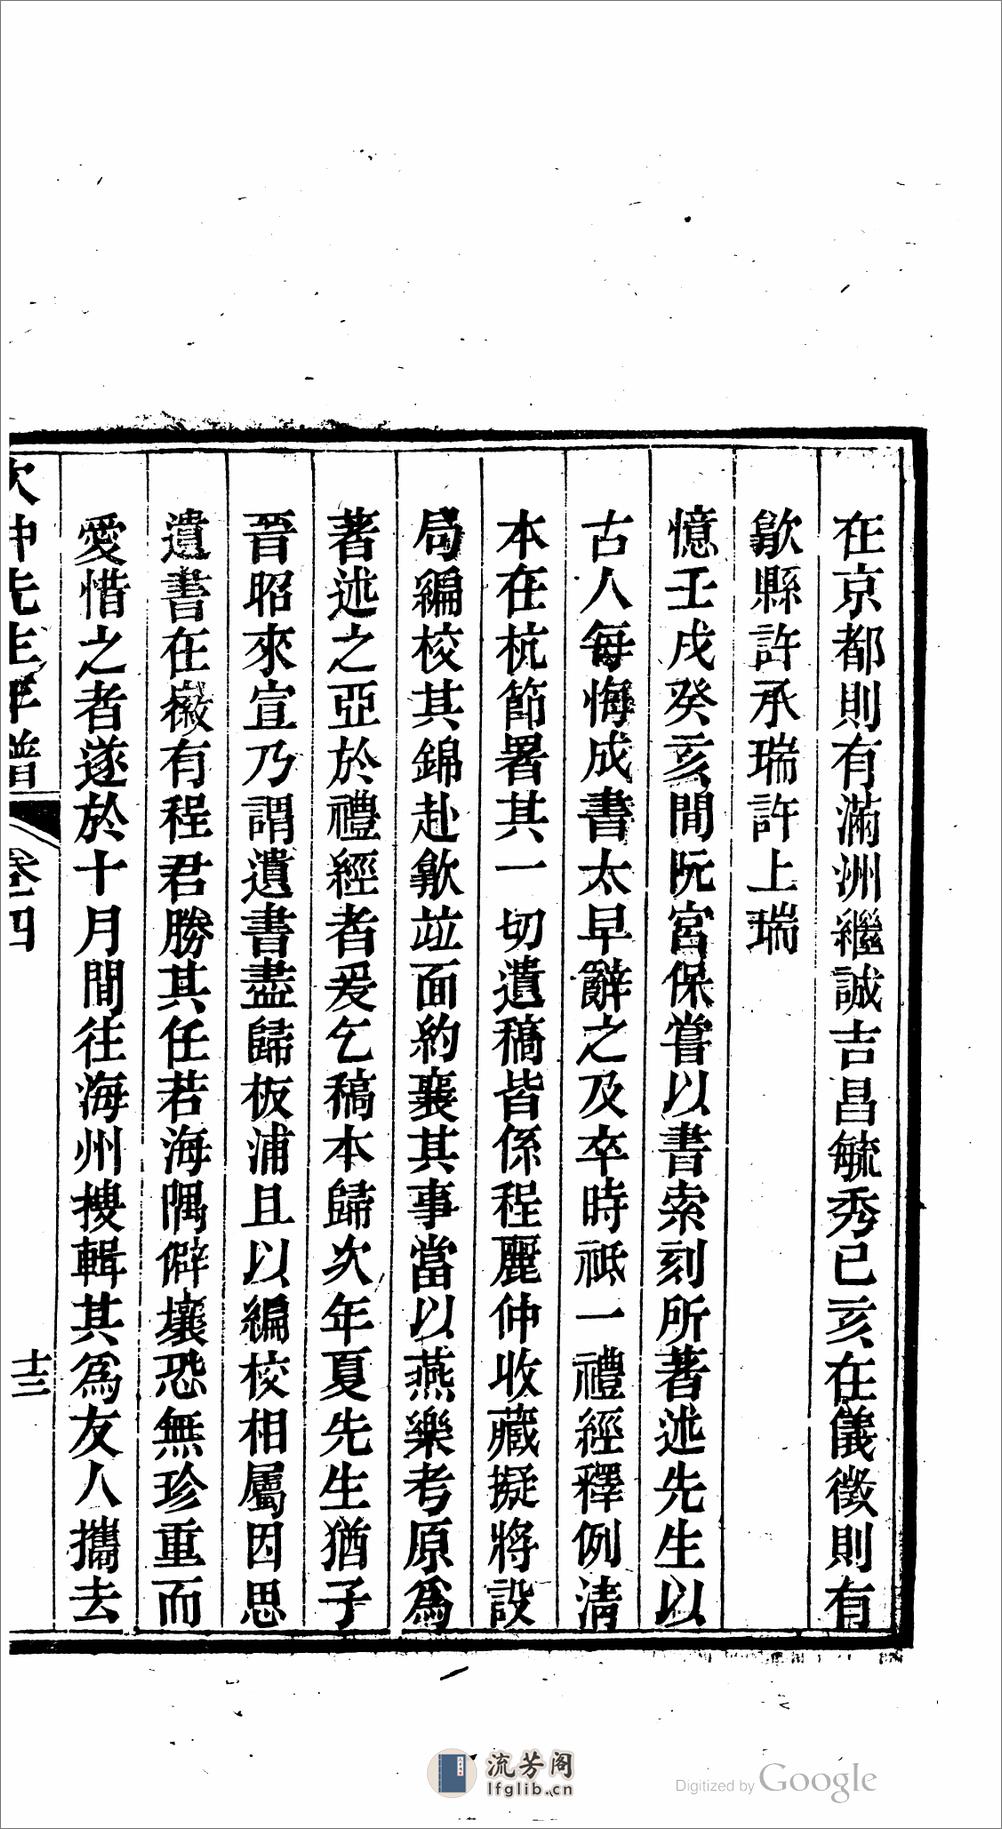 在京都則有滿洲繼誠吉昌毓秀已亥在儀徵則有
歙縣許承瑞許上瑞
憶壬戌癸亥間阮宮保嘗以書索刻所著述先生以
古人每悔成書太早辭之及卒時祗一禮經釋例淸
本在杭節署其一切遺稿皆係程麗仲收藏擬將設
局編校其錦赴歙竝面約襄其事當以燕樂考原爲
著述之亞於禮經者爰乞稿本歸次年夏先生猶子
晉昭來宣乃謂遺書盡歸板浦且以編校相屬因思
遺書在徽有程君勝其任若海隅僻壤恐無珍重而
愛惜之者遂於十月間往海州搜輯其爲友人攜去
次仲先生年譜 卷四 十三
流芳阁
lfglib.cn
Digitized by Google